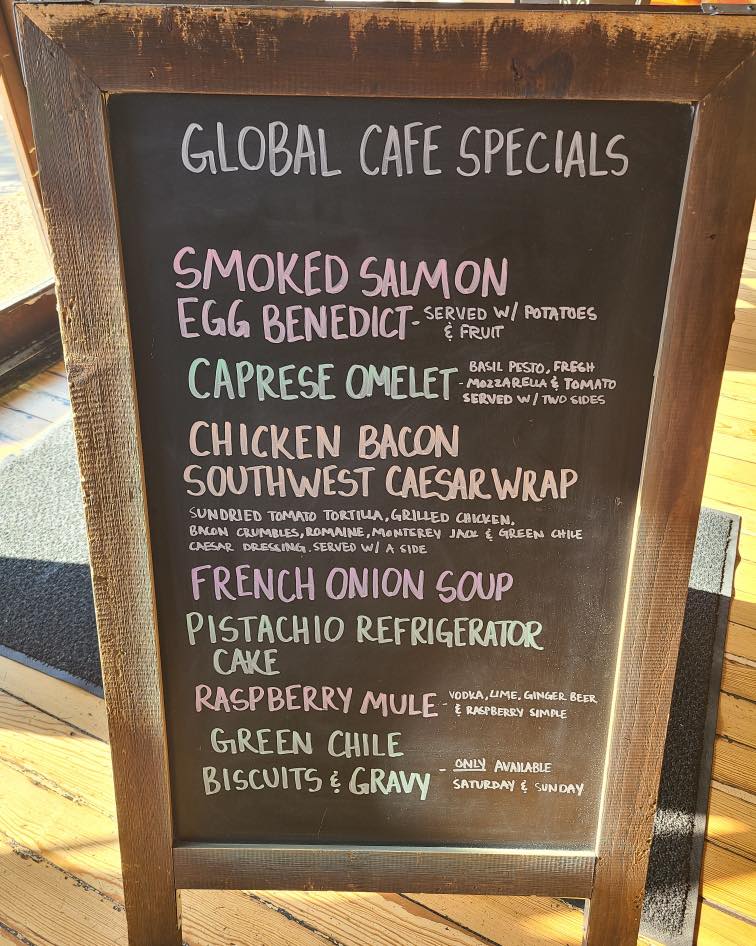 GLOBAL CAFE SPECIALS
SMOKED SALMON
EGG BENEDICT - SERVED W/ POTATOES
& FRUIT
CAPRESE OMELET - BASIL PESTO, FRESH
MOZZARELLA & TOMATO
SERVED W/ TWO SIDES
CHICKEN BACON
SOUTHWEST CAESAR WRAP
SUNDRIED TOMATO TORTILLA, GRILLED CHICKEN,
BACON CRUMBLES, ROMAINE, MONTEREY JACK & GREEN CHILE
CAESAR DRESSING. SERVED W/ A SIDE
FRENCH ONION SOUP
PISTACHIO REFRIGERATOR
CAKE
RASPBERRY MULE - VODKA, LIME, GINGER BEER
& RASPBERRY SIMPLE
GREEN CHILE
BISCUITS & GRAVY - ONLY AVAILABLE
SATURDAY & SUNDAY